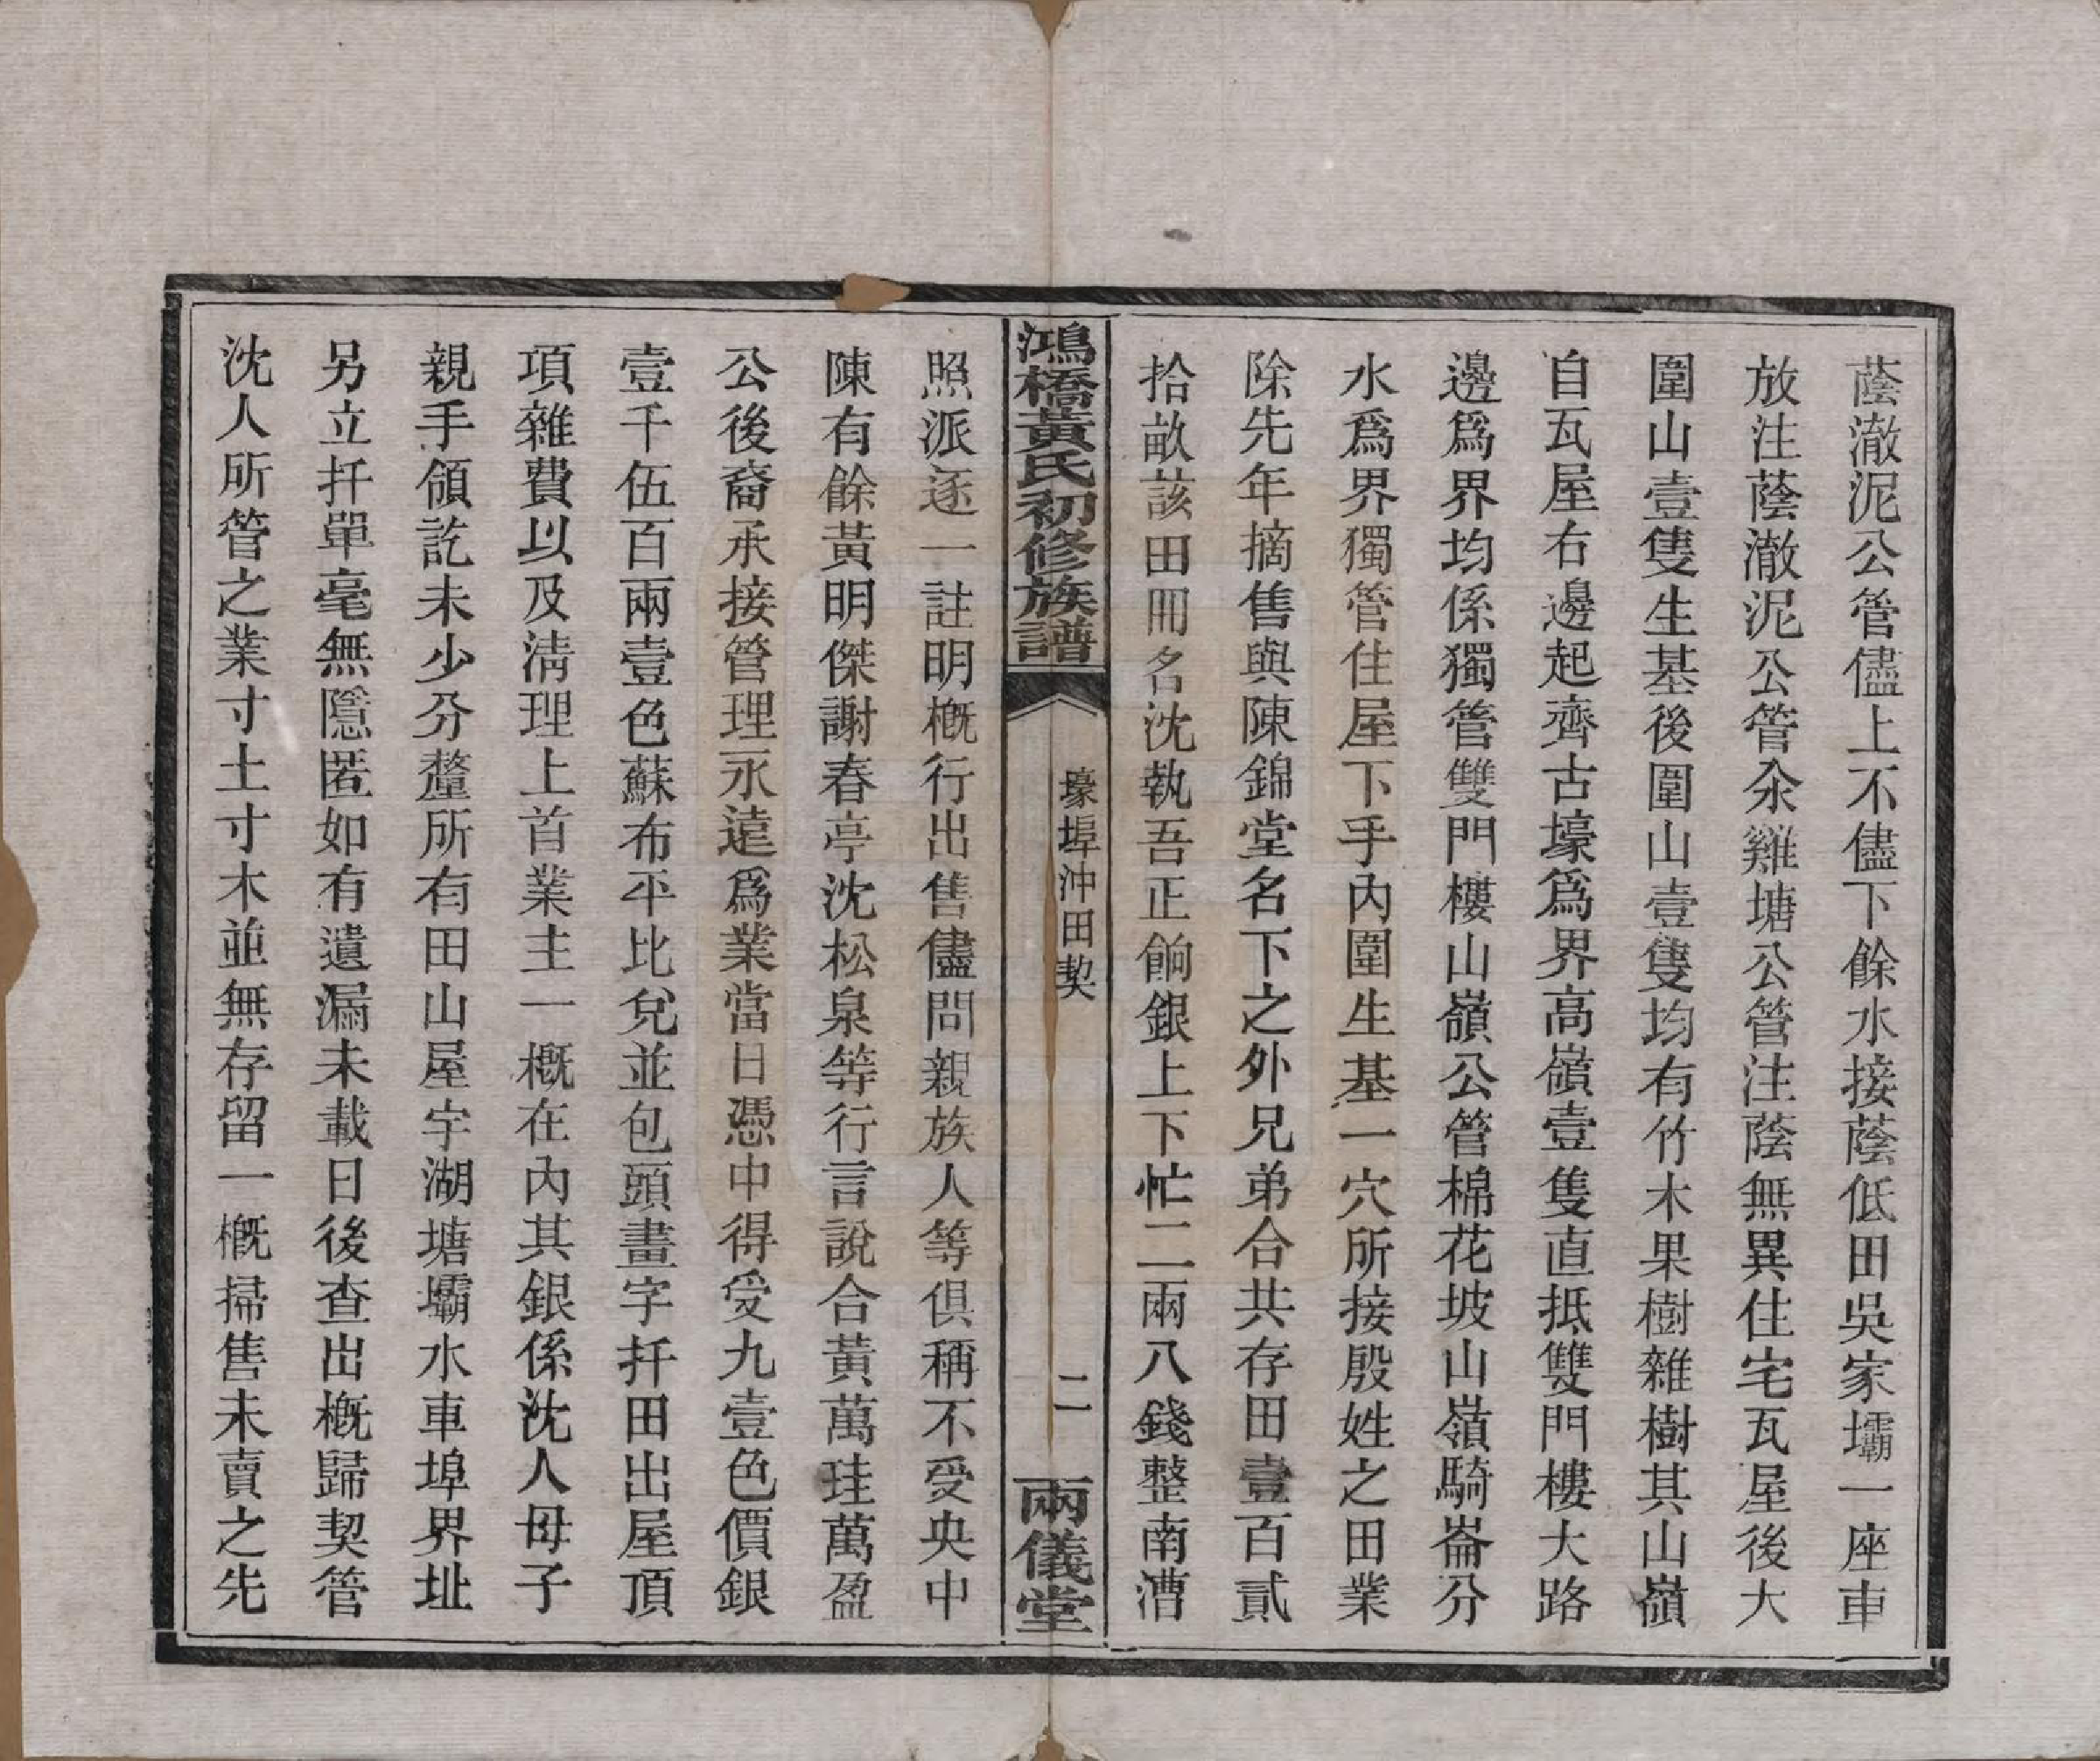 蔭澈泥公管儘上不儘下餘水接蔭低田吳家壩一座車
放注蔭澈泥公管汆雞塘公管注蔭無異住宅瓦屋後大
圍山壹隻生基後圍山壹隻均有竹木果樹雜樹其山嶺
自瓦屋右邊起齊古壕爲界高嶺壹隻直抵雙門樓大路
邊爲界均係獨管雙門樓山嶺公管棉花坡山嶺騎崙分
水爲界獨管住屋下手內圍生基一穴所接殷姓之田業
除先年摘售與陳錦堂名下之外兄弟合共存田壹百貳
拾畝該田冊名沈執吾正餉銀上下忙二兩八錢整南漕
鴻橋黃氏初修族譜
壕埠沖田契
二
兩儀堂
照派逐一註明槪行出售儘問親族人等俱稱不受央中
陳有餘黃明傑謝春亭沈松泉等行言說合黃萬珪萬盈
公後裔承接管理永遠爲業當日憑中得受九壹色價銀
壹千伍百兩壹色蘇布平比兌並包頭畫字扦田出屋頂
項雜費以及淸理上首業主一概在內其銀係沈人母子
親手領訖未少分釐所有田山屋宇湖塘壩水車埠界址
另立扦單毫無隱匿如有遺漏未載日後查出槪歸契管
沈人所管之業寸土寸木並無存留一槪掃售未賣之先